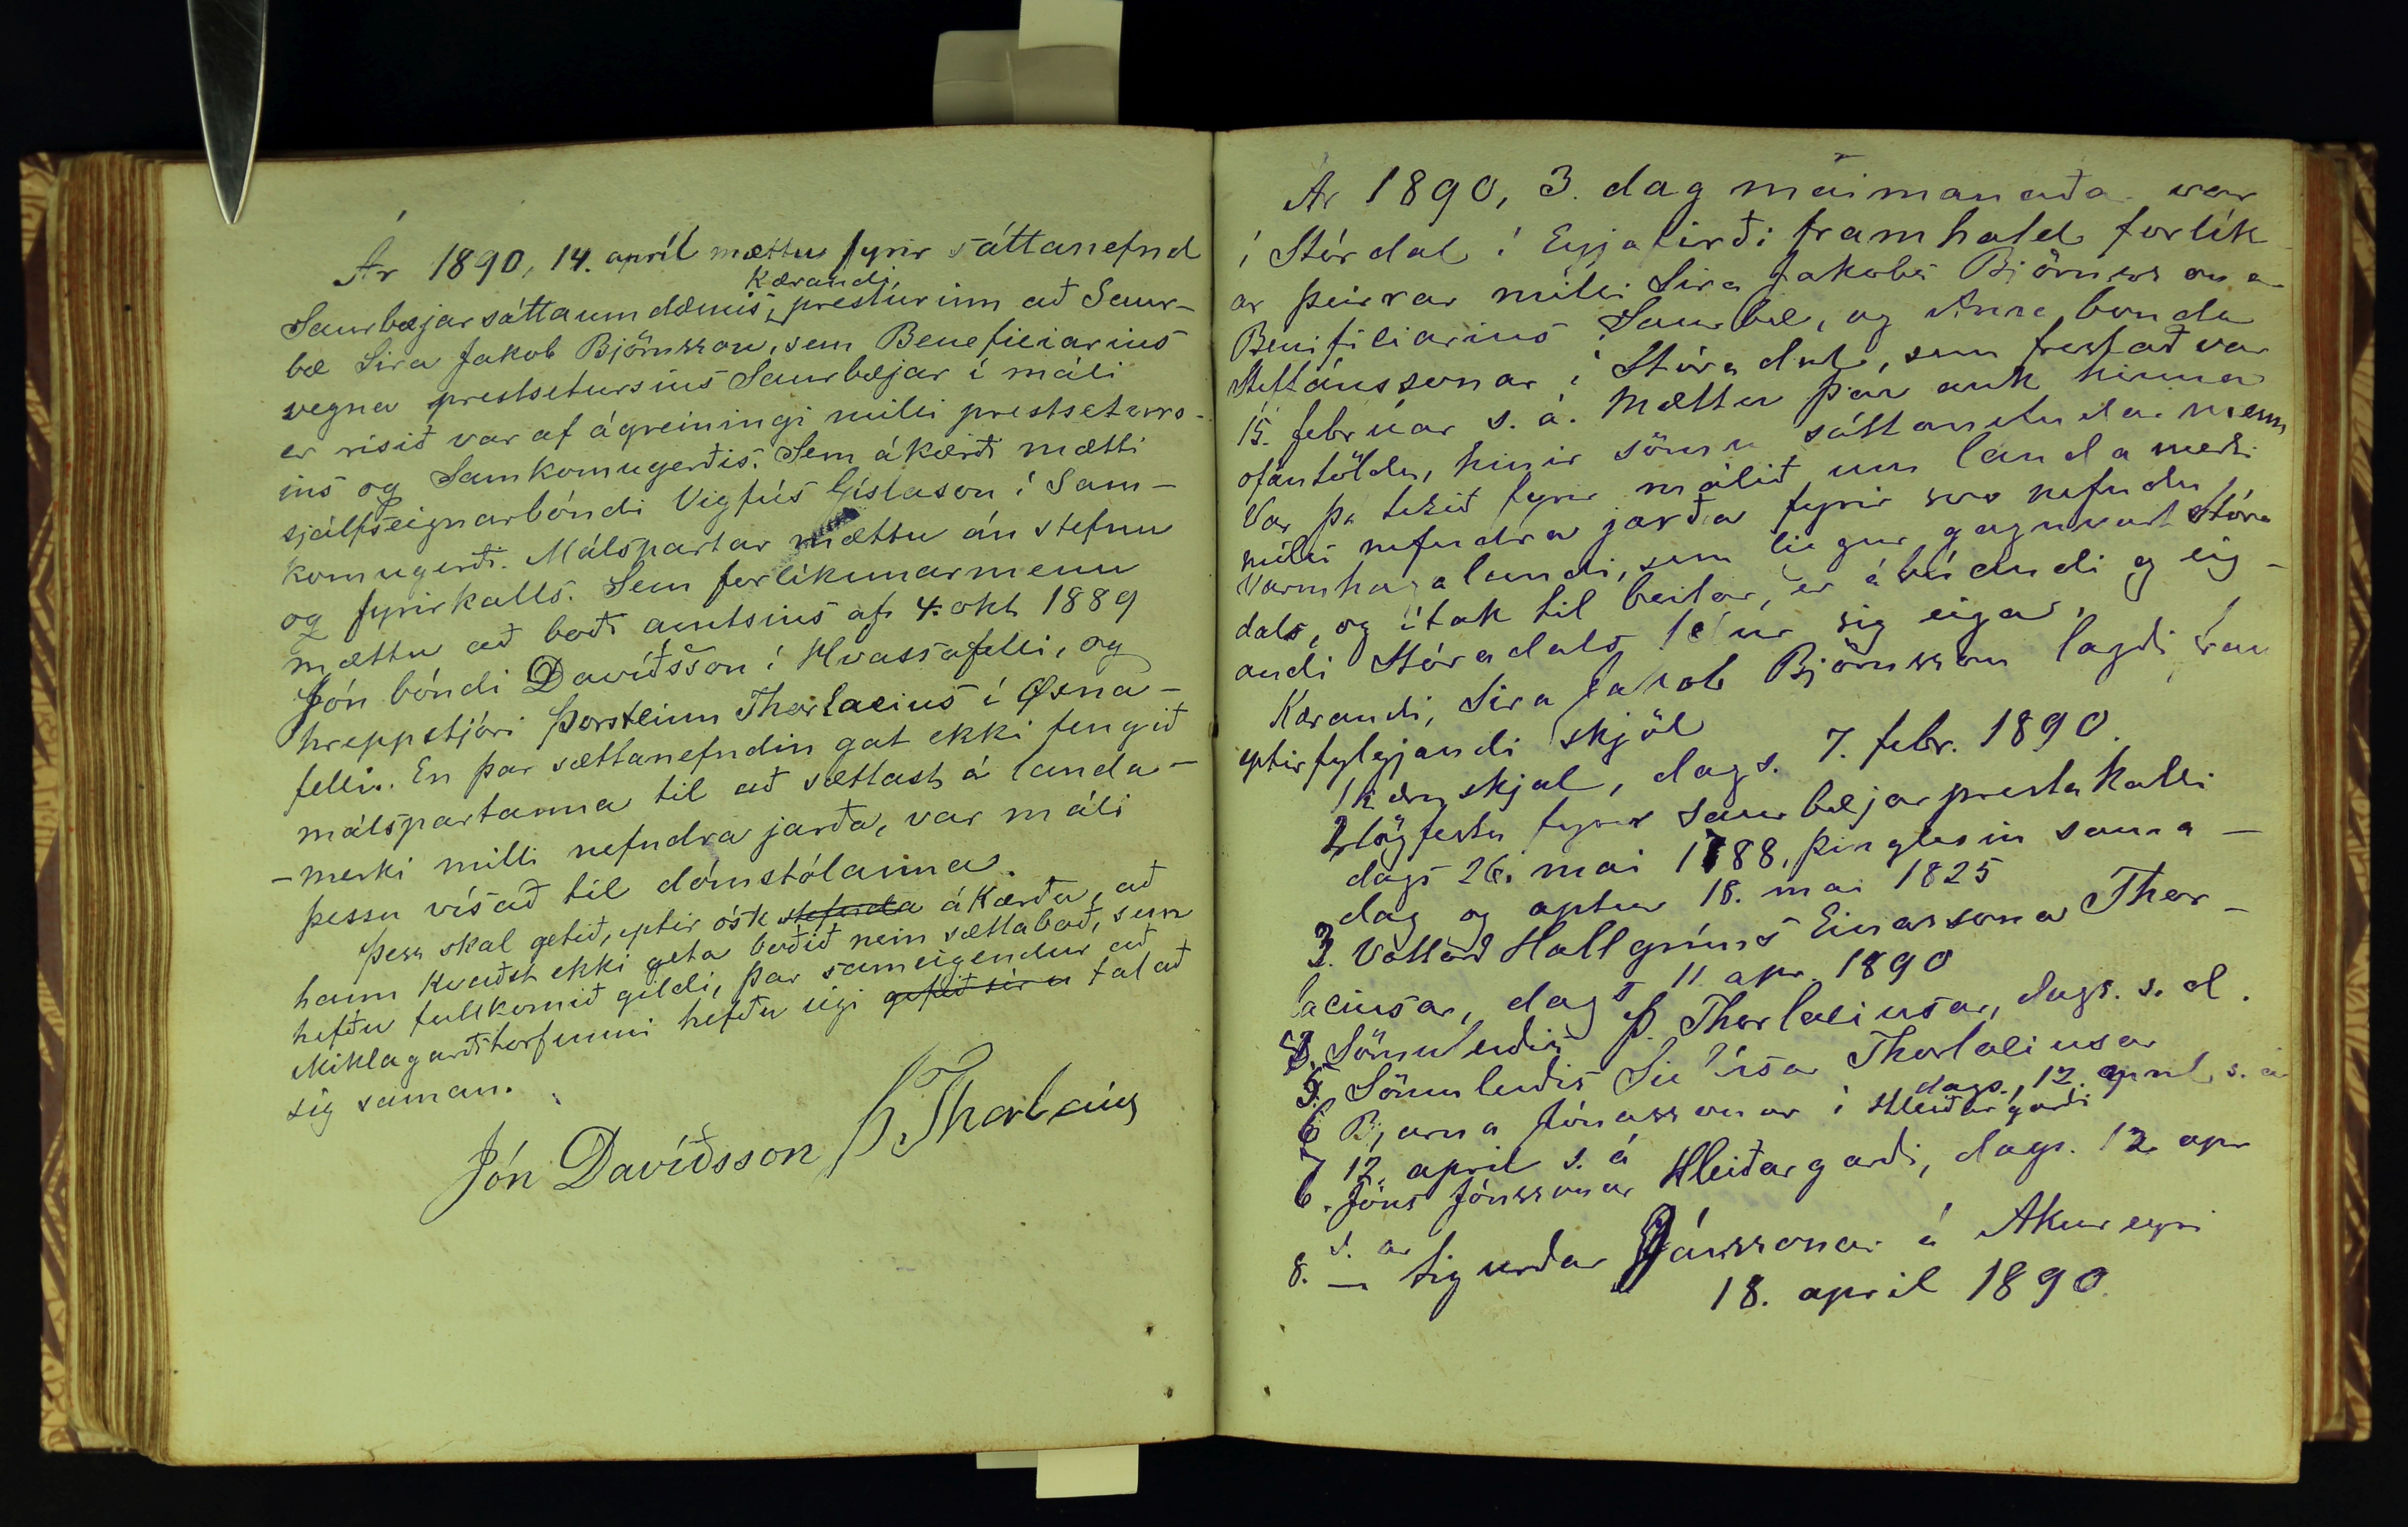 Ár 1890, 14. apríl mættu fyrir sáttanefnd
Kærandi
Saurbæjarsáttaumdæmis, presturinn að Saur-
bæ Síra Jakob Björnsson, sem Beneficiarius
vegna prestsetursins Saurbæjar í máli
er risið var af ágreiningi milli prestseturs-
ins og Samkomugerðis. Sem ákærði mætti
sjálfseignarbóndi Vigfús Gíslason í Sam-
komugerði. Málspartar mættu án stefnu
og fyrirkalls. Sem forlíkunarmenn
mættu að boði amtsins af 4. okt 1889
Jón bóndi Davíðsson í Hvassafelli, og
hreppstjóri Þorsteinn Thorlacius í Øxna-
felli. En þar sættanefndin gat ekki fengið
málspartanna til að sættast á landa-
-merki milli nefndra jarða, var máli
þessu vísað til dómstólanna.
Þess skal getið, eptir ósk stefnda ákærða, að
hann kvaðst ekki geta boðið nein sættaboð, sem
hefðu fullkomið gildi, þar sameigendur að
Miklagarðstorfunni hefðu eigi talað
sig saman.
Jón Davíðsson Þ Thorlacius
Ár 1890, 3. dag maímánaðar var
í Stórdal í Eyjafirði framhald forlík
ar þeirrar milli Síra Jakobs Björnssonar
Benificiarius í Saurbæ, og Árna bónda
Steffánssonar í Stóradal, sem frestað var
15. febrúar s. á. Mættu þar auk hinna
ofantöldu, hinir sömu sáttanefndarmenn
Var þá tekið fyrir málið um landamerki
milli nefndra jarða fyrir svo nefndu
Varmhagalandi, sem liggur gagnvart Stóra
dals, og ítak til beitar, er ábúandi og eig-
andi Stóradals telur sig eiga.
Kærandi, Síra Jakob Björnsson lagði fram
eptirfylgjandi skjöl
1 Kæruskjal, dags. 7. febr. 1890.
2 Lögfestu fyrir Saurbæjarprestakalli
dags 26. mai 1788, þinglesin sama -
dag og aptur 18. mai 1825
3. Vottorð Hallgríms Einarssonar Thor-
laciusar, dags 11 apr. 1890
4. Sömuleiðis Þ. Thorlaciusar, dags. s. d.
5. Sömuleiðis Thorlaciusar
dags. 12. apríl s. á
6 Bjarna Jónassonar í Hleiðargarði
7 12. april s. á
6. Jóns Jónssonar Hleiðargarði, dags. 12. apr
s. ár
8. — Sigurðar Jónssonar á Akureyri
18. april 1890.